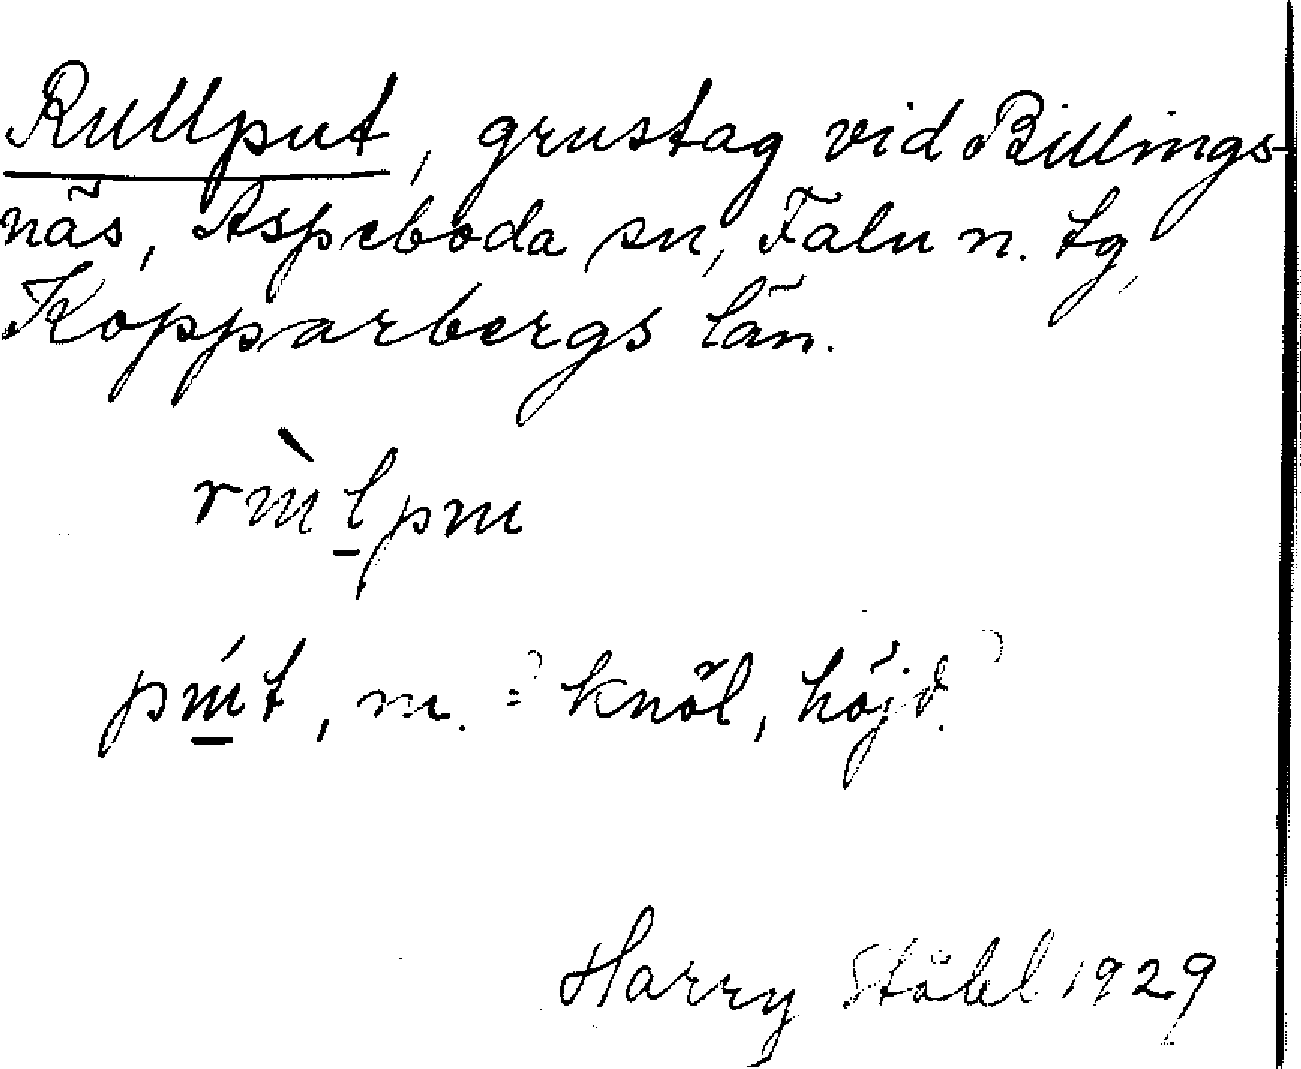 Rullput, grustag vid Billings-
näs, Aspeboda sn, Falu n. tg,
Kopparbergs län.
rm̀l̲pm
pḿ̲t, m. = knöl, höjd.
Harry Ståhl 1929